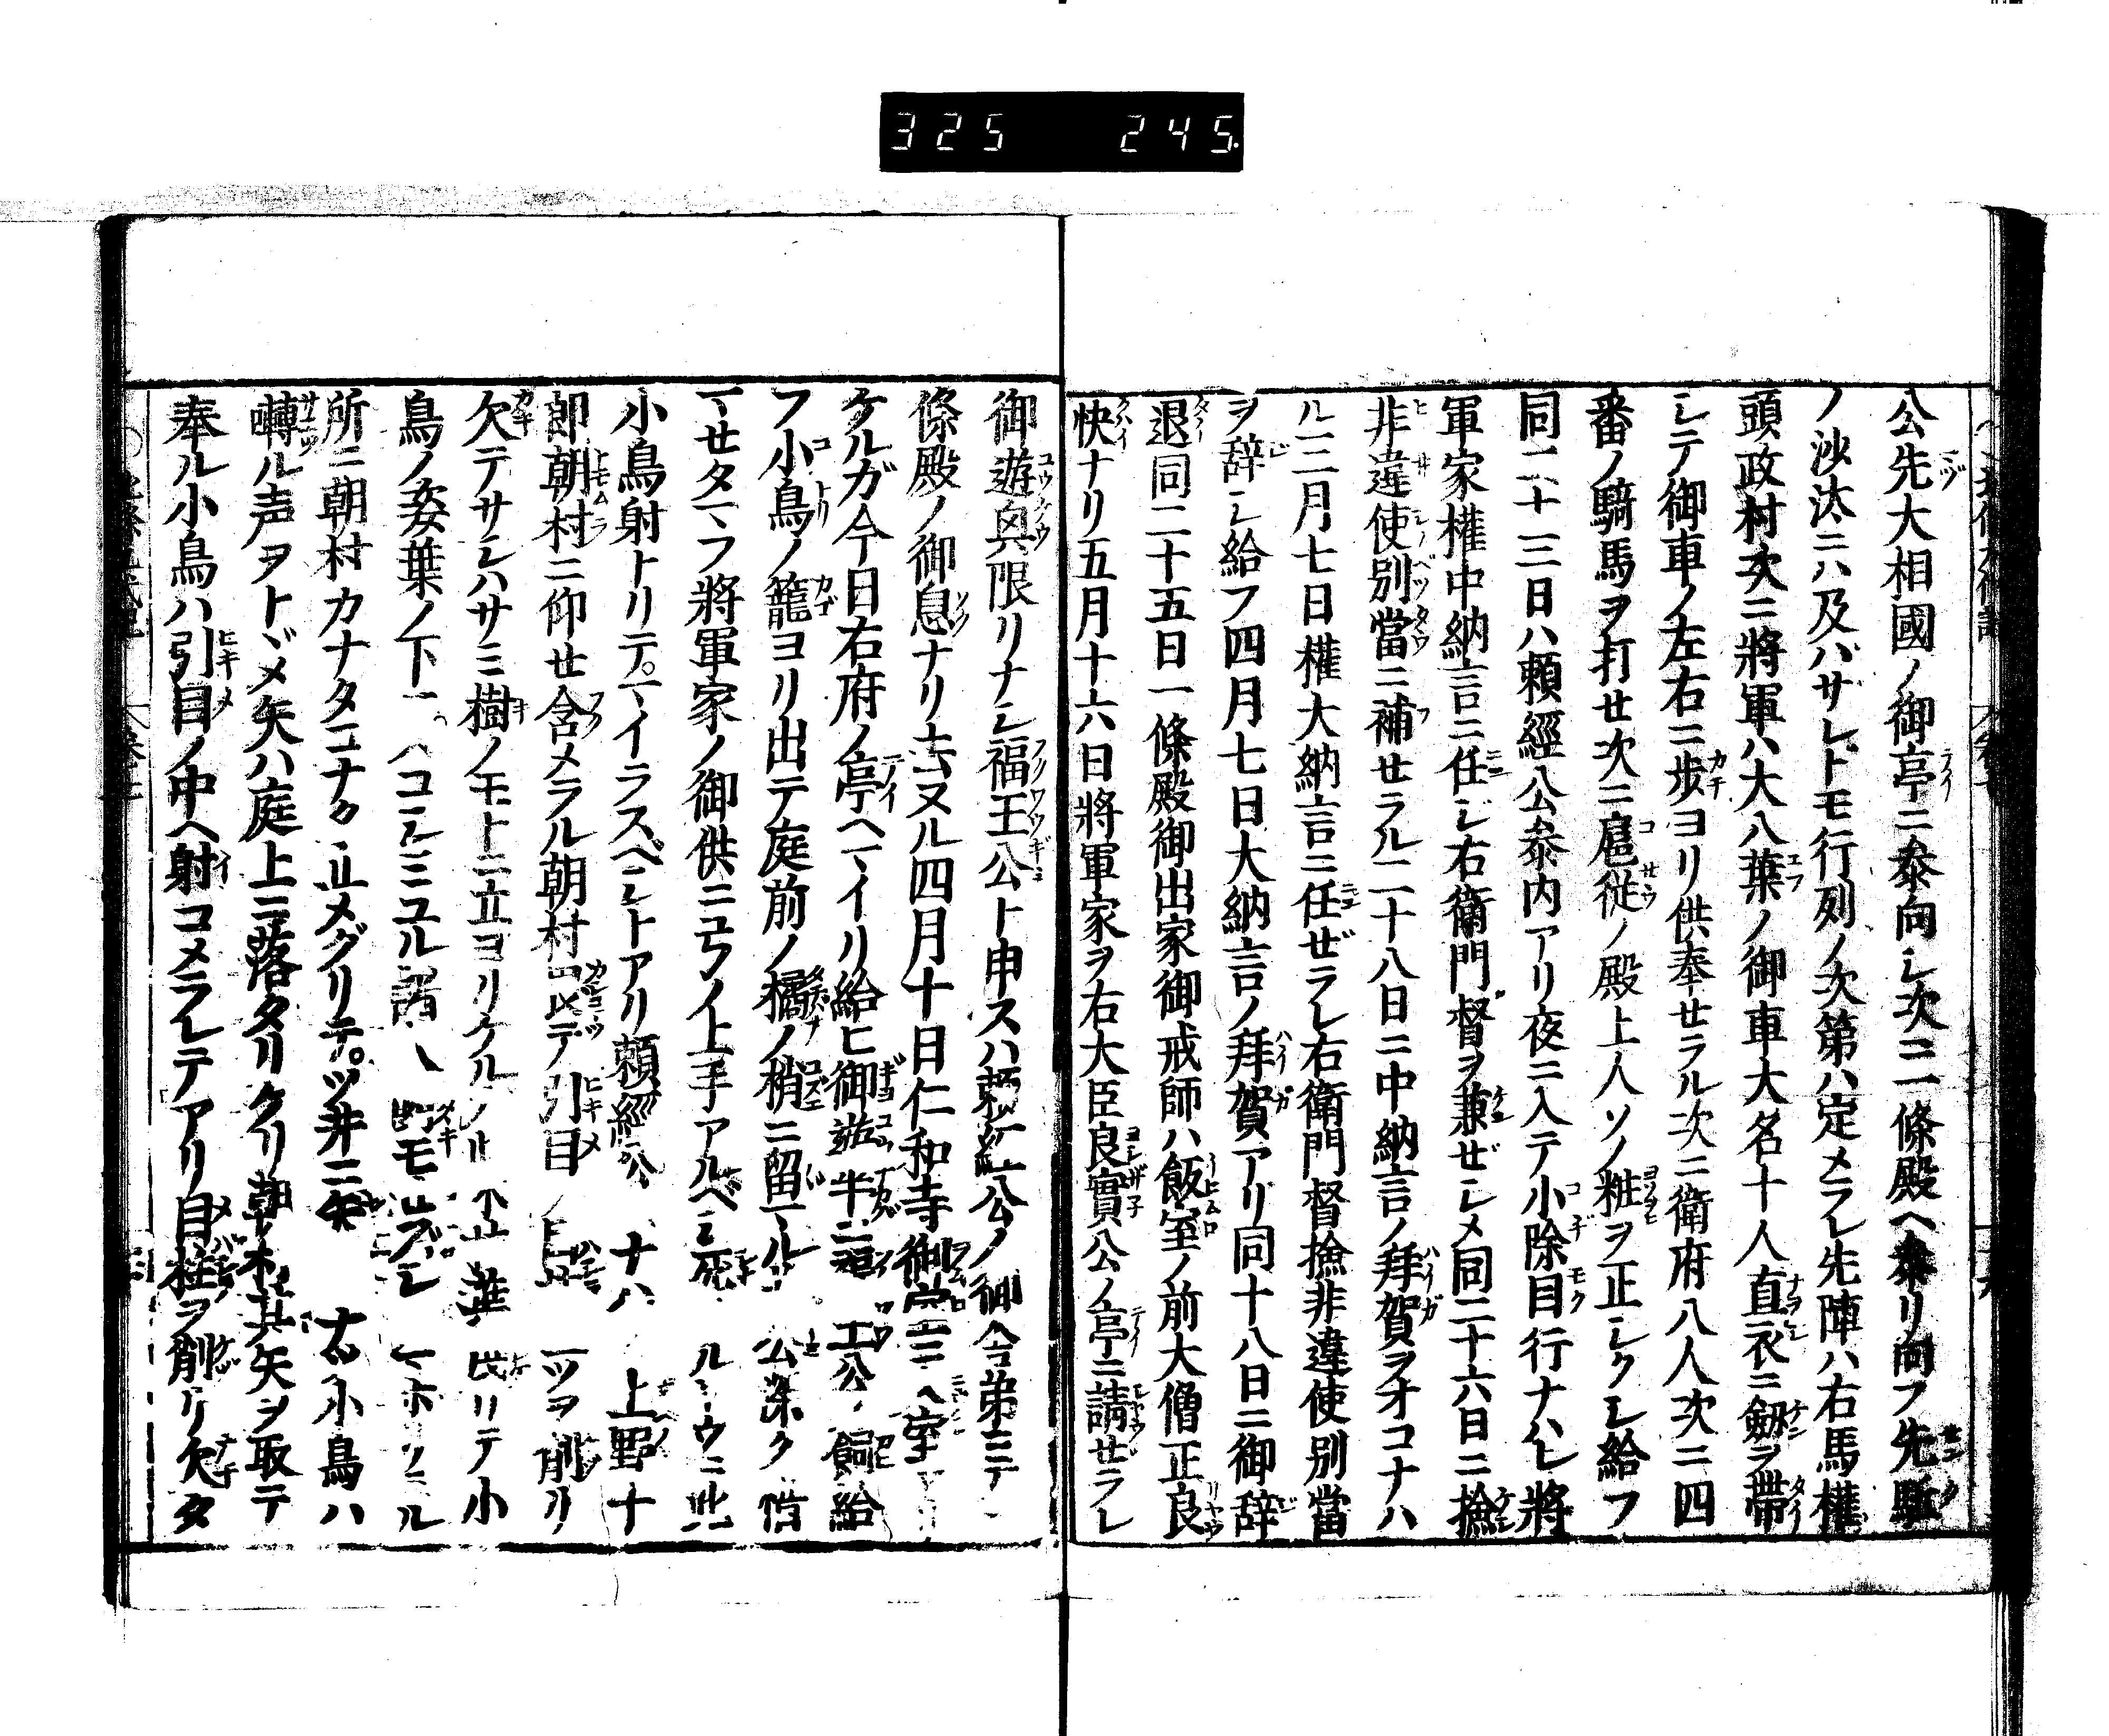 325 245.
公先大相國ノ御亭ニ参向シ次ニ一條殿ヘ参リ向フ先駈
ノ沙汰ニハ及バザレドモ行列ノ次第ハ定メラレ先陣ハ右馬權
頭政村次ニ將軍ハ大八葉ノ御車大名十人直衣ニ劔ヲ帯
シテ御車ノ左右ニ歩ヨリ供奉セラル次ニ衛府八人次ニ四
番ノ騎馬ヲ打セ次ニ扈従ノ殿上人ソノ粧ヲ正シクシ給フ
同二十三日ハ頼經公参内アリ夜ニ入テ小除目行ナハレ將
軍家權中納言ニ任ジ右衛門督ヲ兼ゼシメ同二十六日ニ撿
非違使別當ニ補セラル二十八日ニ中納言ノ拜賀ヲオコナハ
ル三月七日權大納言ニ任ゼラレ右衛門督撿非違使别當
ヲ辞シ給フ四月七日大納言ノ拜賀アリ同十八日ニ御辞
退同二十五日一條殿御出家御戒師ハ飯室ノ前大僧正良
快ナリ五月十六日將軍家ヲ右大臣良實公ノ亭ニ請ゼラレ
御遊興限リナシ福王公ト申スハ頼經公ノ御令弟ニテ一
條殿ノ御息ナリ去ヌル四月十日仁和寺御室ニ入室
ケルガ今日右府ノ亭ヘマイリ給ヒ御遊 公 飼給
フ小鳥ノ籠ヨリ出テ庭前ノ橘ノ梢ニ留マル 公深ク惜
マセタマフ將軍家ノ御供ニコラノ上手アルベシ 此
小鳥射トリテマイラスベシトアリ頼經公 上野十
郎朝村ニ仰セ含メラル朝村 テ引目 一ツヲ削リ
欠テサシハサミ樹ノモトニ立ヨリケル 葉 リテ小
鳥ノ姿葉ノ下 コシミユル諸
所ニ朝村カナタコナタ立メグリテツ井ニ矢 小鳥ハ
囀ル声ヲトヾメ矢ハ庭上ニ落タリケリ朝村其矢ヲ取テ
奉ル小鳥ハ引目ノ中ヘ射コメラレテアリ目柱ヲ削リ欠タ